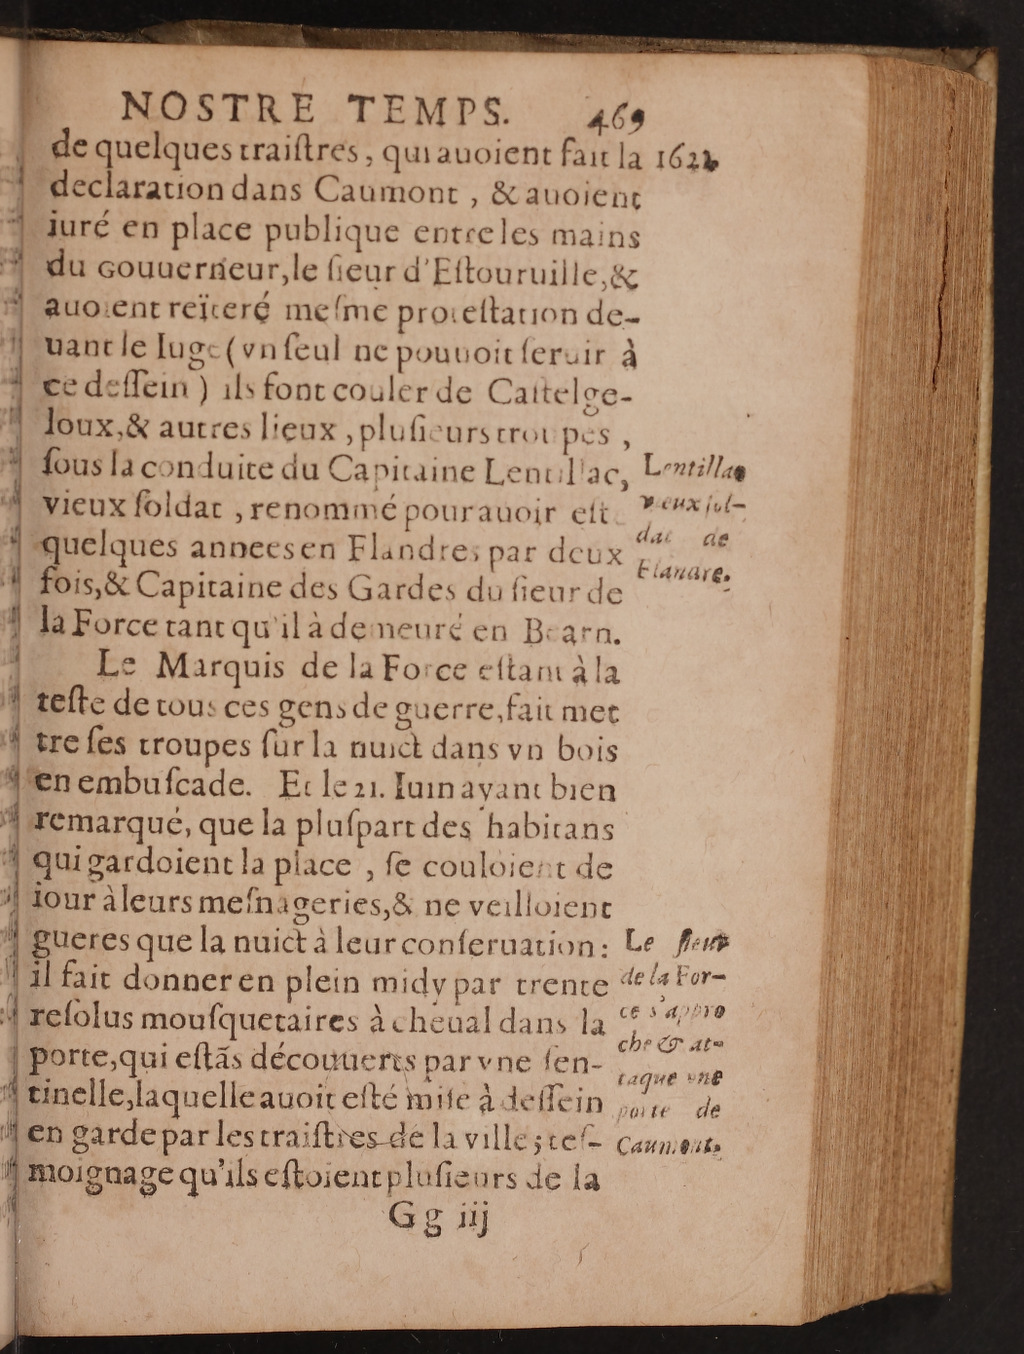 NOSTRE TEMPS. 469
de quelques traiſtres, qui auoient fait la 1621
declaration dans Caumont, & auoient
iuré en place publique entre les mains
du Gouuerneur, le ſieur d'Eſtouruille, &
auoient reïteré meſme proteſtation de-
uant le Iuge (vn ſeul ne pouuoit ſeruir à
ce deſſein) ils font couler de Caſtelge-
loux, & autres lieux, pluſieurs troupes,
ſous la conduite du Capitaine Lentillac,
vieux ſoldat, renommé pour auoir eſté
quelques annees en Flandres par deux
fois, & Capitaine des Gardes du ſieur de
la Force tant qu'il à demeuré en Bearn.
Lentillac
vieux ſol-
dat de
Flandre.
Le Marquis de la Force eſtant à la
teſte de tous ces gens de guerre, fait met
tre ſes troupes ſur la nuict dans vn bois
en embuſcade. Et le 21. Iuin ayant bien
remarqué, que la pluſpart des habitans
qui gardoient la place, ſe couloient de
iour à leurs meſnageries, & ne veilloient
gueres que la nuict à leur conſeruation:
il fait donner en plein midy par trente
reſolus mouſquetaires à cheual dans la
porte, qui eſtãs découuerts par vne ſen-
tinelle, laquelle auoit eſté miſe à deſſein
en garde par les traiſtres de la ville; teſ-
moignage qu'ils eſtoient pluſieurs de la
Le ſieur
de la For-
ce s'appro
che & at-
taque vne
porte de
Caumont.
Gg iij